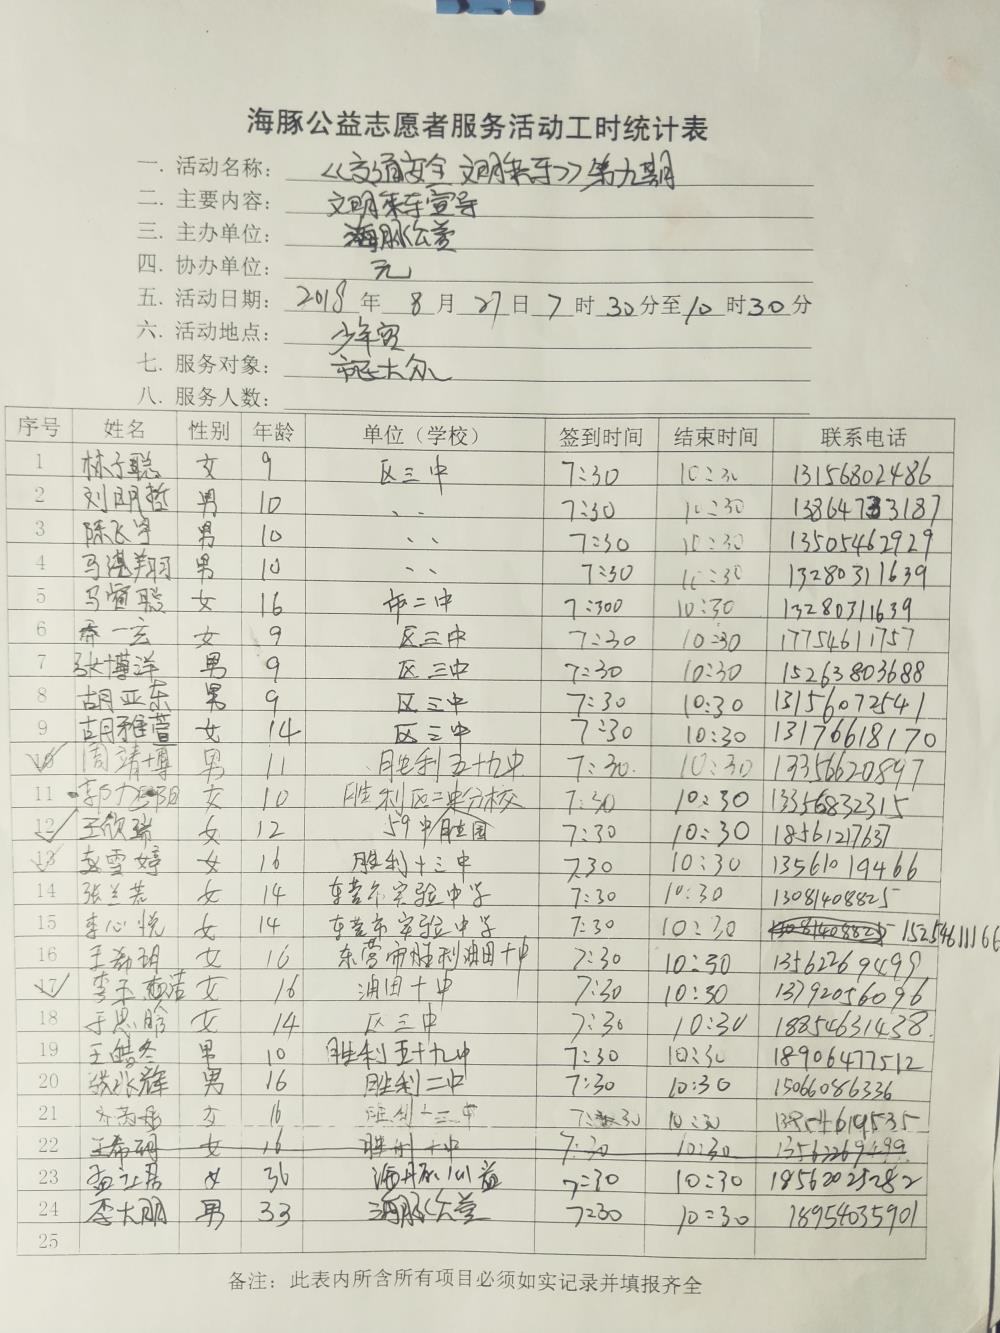 海豚公益志愿者服务活动工时统计表
一. 活动名称: 《交通安全 文明乘车》第九期
二. 主要内容: 文明乘车宣导
三. 主办单位: 海豚公益
四. 协办单位: 无
五. 活动日期: 2018 年 8 月 27 日 7 时 30 分至 10 时 30 分
六. 活动地点: 少年宫
七. 服务对象: 市民大众
八. 服务人数:
序号 姓名 性别 年龄 单位（学校） 签到时间 结束时间 联系电话
1 林子聪 女 9 区三中 7:30 10:30 13156802486
2 刘明哲 男 10 、、 7:30 10:30 13864733187
3 陈飞宇 男 10 、、 7:30 10:30 13505462929
4 马湛翔羽 男 10 、、 7:30 10:30 13280311639
5 马宣聪 女 16 市二中 7:300 10:30 13280311639
6 乔一玄 女 9 区三中 7:30 10:30 17754611757
7 张博洋 男 9 区三中 7:30 10:30 15263803688
8 胡亚东 男 9 区三中 7:30 10:30 13156072541
9 胡雅萱 女 14 区三中 7:30 10:30 13176618170
10 周靖博 男 11 胜利五十九中 7:30 10:30 13356620897
11 女 10 胜利区三中分校 7:30 10:30 13356832315
12 王欣瑞 女 12 59中胜园 7:30 10:30 18561217637
13 赵雪婷 女 16 胜利十三中 7:30 10:30 13561019466
14 张兰若 女 14 东营市实验中学 7:30 10:30 13081408825
15 李心悦 女 14 东营市实验中学 7:30 10:30 13081408825 15254611166
16 王希玥 女 16 东营市胜利油田十中 7:30 10:30 13562269499
17 李玉洁 女 16 油田十中 7:30 10:30 13792056096
18 于思晗 女 14 区三中 7:30 10:30 18854631438
19 王皓冬 男 10 胜利五十九中 7:30 10:30 18906477512
20 张兆辉 男 16 胜利二中 7:30 10:30 15066086336
21 女 16 胜利十三中 7:30 10:30
22 王希玥 女 16 胜利十中 7:30 10:30 13562269499
23 孟立君 女 36 海豚公益 7:30 10:30 18562025282
24 李大鹏 男 33 海豚公益 7:30 10:30 18954035901
25
备注：此表内所含所有项目必须如实记录并填报齐全